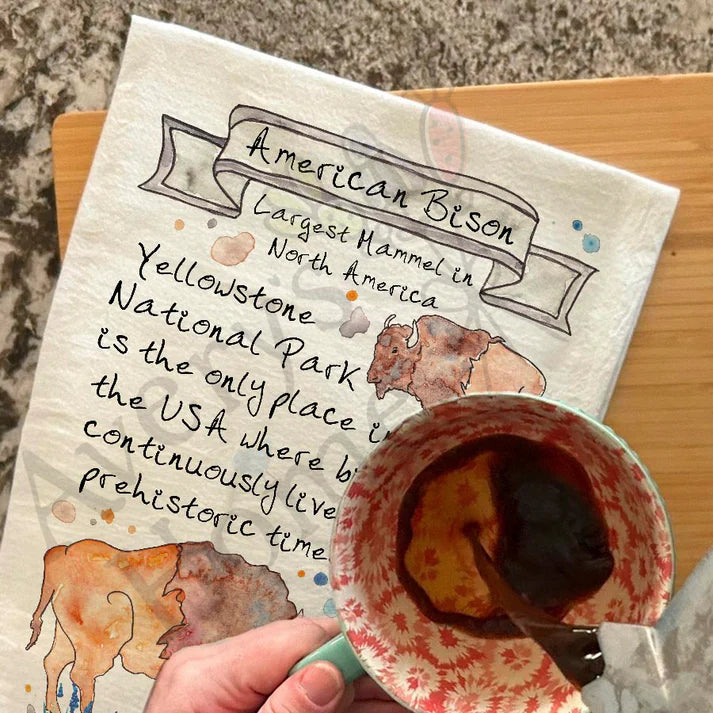 American Bison
Largest Mammel in
North America
Yellowstone
National Park
is the only place
the USA where
continuously live
prehistoric time
Avery's
Home